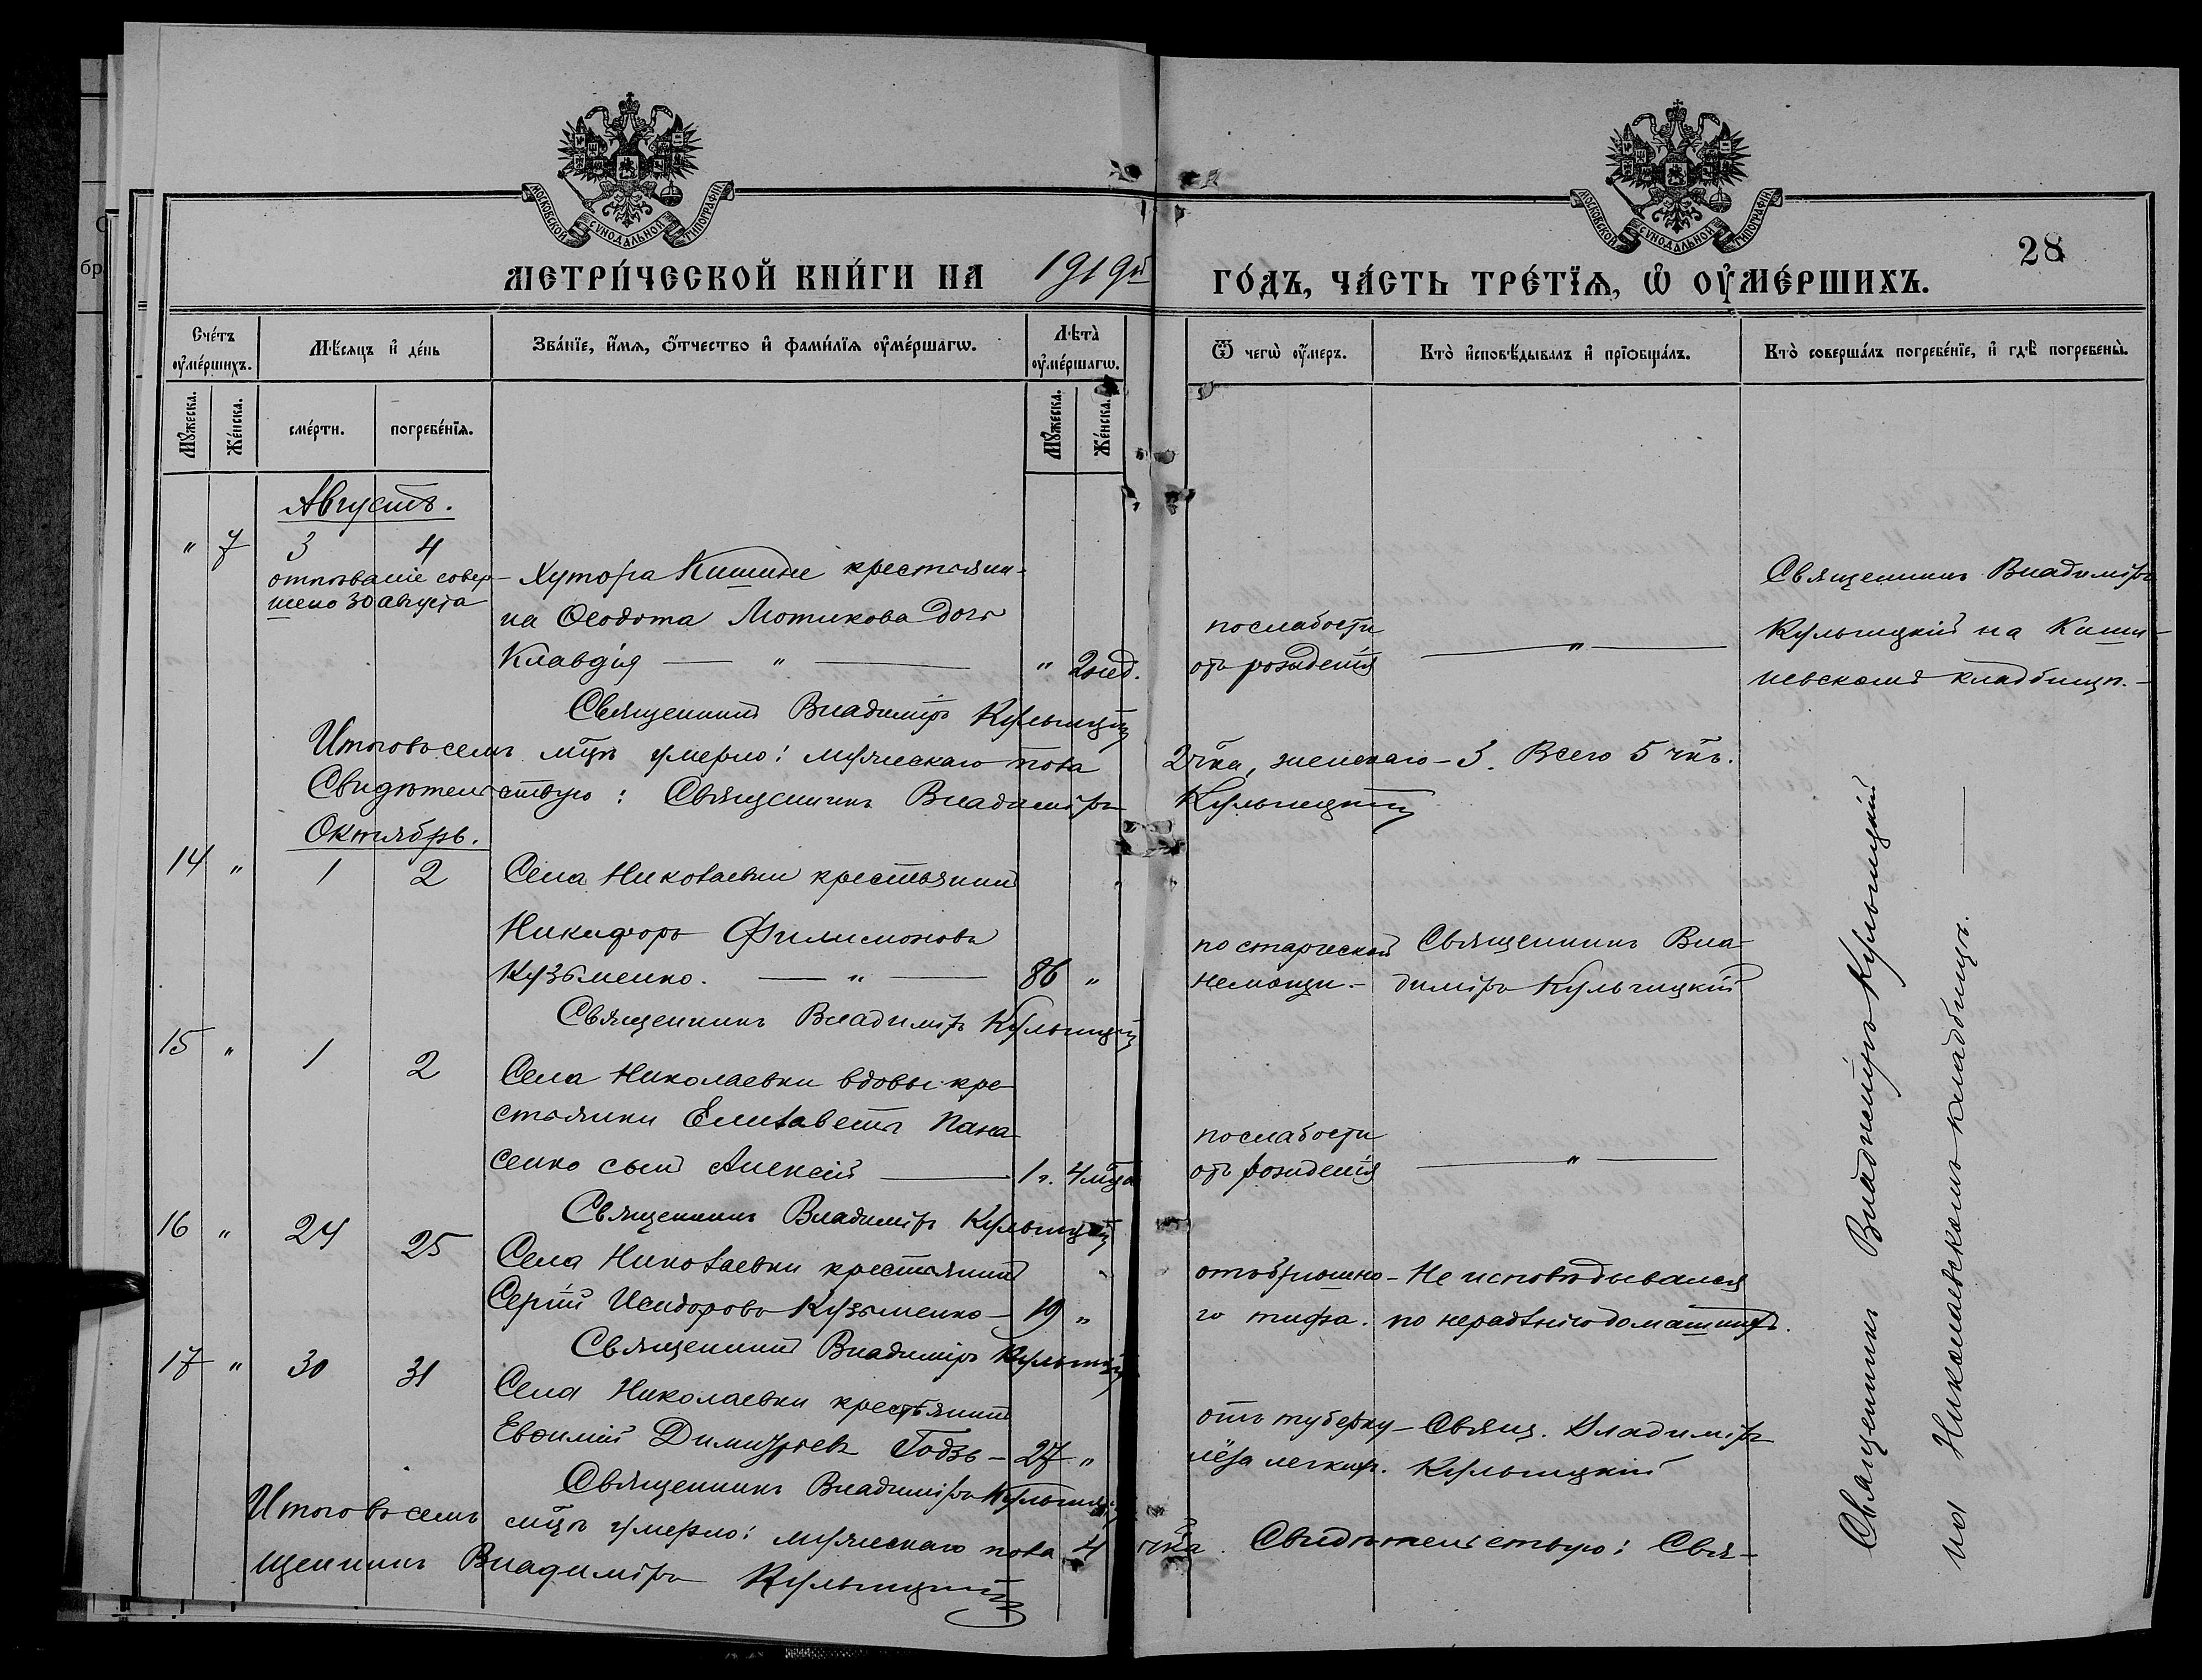 МОСКОВСКОЙ СѴНОДАЛЬНОЙ ТИПОГРАФІИ
МОСКОВСКОЙ СѴНОДАЛЬНОЙ ТИПОГРАФІИ
28
МЕТРИ́ЧЕСКОЙ КНИ́ГИ НА 1919й ГО́ДЪ, ЧА́СТЬ ТРЕ́ТЇѦ, Ѡ҆ ОУ҆МЕ́РШИХЪ.
Сче́тъ оу҆ме́ршихъ.
Мꙋ́жеска.
Же́нска.
Мѣ́сяцъ и҆ де́нь
сме́рти.
погребе́нїѧ.
Зва́нїе, и҆́мѧ, ѻ҆́тчество и҆ фами́лїѧ оу҆ме́ршагѡ.
Лѣ̑та̀ оу҆ме́ршагѡ.
Мꙋ́жеска.
Же́нска.
Ѿ чегѡ̀ оу҆́меръ.
Кто̀ и҆сповѣ́дывалъ и҆ прїѡбща́лъ.
Кто̀ соверша́лъ погребе́нїе, и҆ гдѣ̀ погребены̀.
Августъ.
" 7 3 4
отпѣваніе совер-
шено 30 августа
Хутора Кишине крестьяни-
на Ѳеодота Мотикова дочь
Клавдія — " — " 2 нед.
по слабости
отъ рожденія
— " —
Священникъ Владиміръ
Кульчицкій на Киши-
невскомъ кладбищѣ.-
Священникъ Владиміръ Кульчицкій
Итого въ семъ мцѣ умерло: мужескаго пола 2 чка, женскаго - 3. Всего 5 чкъ.
Свидѣтельствую: Священникъ Владиміръ Кульчицкій
Октябрь.
14 " 1 2
Села Николаевки крестьянинъ
Никифоръ Филимоновъ
Кузьменко. — " — 86 "
по старческой
немощи.-
Священникъ Вла-
диміръ Кульчицкій
Священникъ Владиміръ Кульчицкій
15 " 1 2
Села Николаевки вдовы кре-
стьянки Елисаветы Пана-
сенко сынъ Алексій — 1 г. 4 мца
по слабости
отъ рожденія
— " —
Священникъ Владиміръ Кульчицкій
16 " 24 25
Села Николаевки крестьянинъ
Сергій Исидоровъ Кузьменко - 19 "
отъ брюшно-
го тифа.
Не исповѣдывался
по нерадѣнію домашнихъ.
Священникъ Владиміръ Кульчицкій
17 " 30 31
Села Николаевки крестьянинъ
Евѳимій Димитріевъ Годзь - 27 "
отъ туберку-
лёза легкихъ.
Свящ. Владиміръ
Кульчицкій
Священникъ Владиміръ Кульчицкій
Итого въ семъ мцѣ умерло: мужескаго пола 4 чка. Свидѣтельствую: Свя-
щенникъ Владиміръ Кульчицкій
Священникъ Владиміръ Кульчицкій
на Николаевскомъ кладбищѣ. —